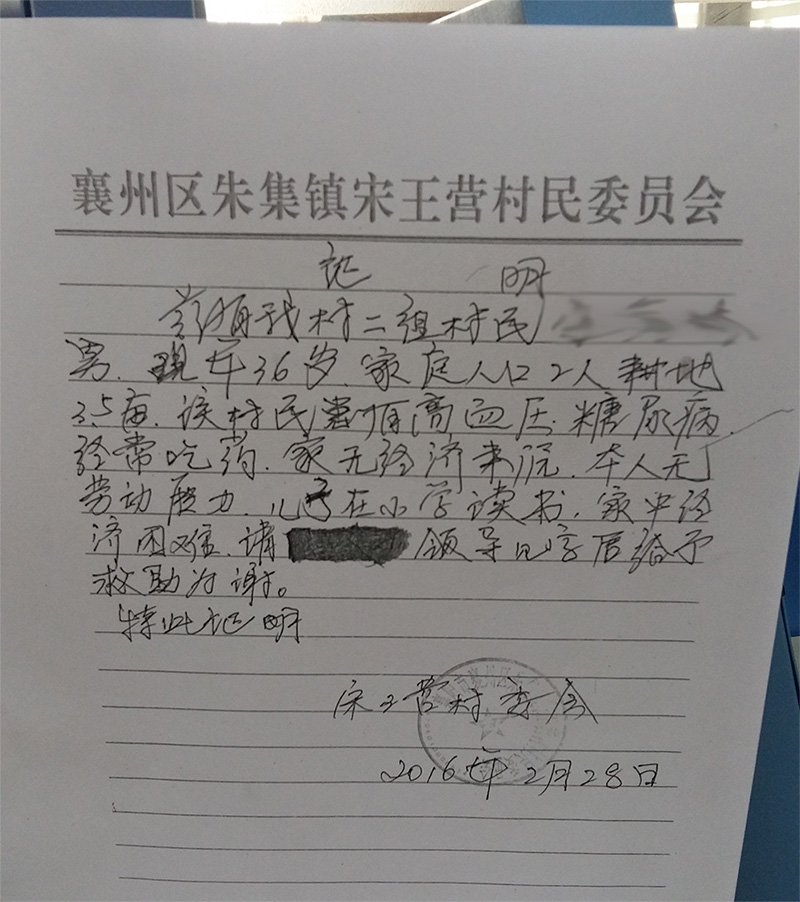 襄州区朱集镇宋王营村民委员会
证 明
兹有我村二组村民
男、现年36岁、家庭人口2人耕地
3.5亩、该村民患有高血压、糖尿病、
经常吃药、家无经济来源、本人无
劳动能力、儿子在小学读书、家中经
济困难、请 领导见字后给予
救助为谢。
特此证明
宋王营村委会
2016年2月28日